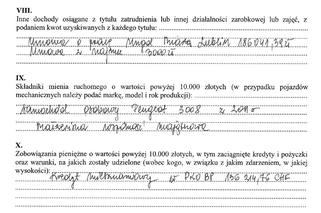 VIII.
Inne dochody osiągane z tytułu zatrudnienia lub innej działalności zarobkowej lub zajęć, z
podaniem kwot uzyskiwanych z każdego tytułu:
Umowa o pracę Urząd Miasta Lublin 186041,39 zł
Umowa z najmu 3000 zł
IX.
Składniki mienia ruchomego o wartości powyżej 10.000 złotych (w przypadku pojazdów
mechanicznych należy podać markę, model i rok produkcji):
Samochód osobowy Peugeot 3008 z
małżeńska wspólność majątkowa
X.
Zobowiązania pieniężne o wartości powyżej 10.000 złotych, w tym zaciągnięte kredyty i pożyczki
oraz warunki, na jakich zostały udzielone (wobec kogo, w związku z jakim zdarzeniem, w jakiej
wysokości):
Kredyt mieszkaniowy w PKO BP 156 214,76 CHF